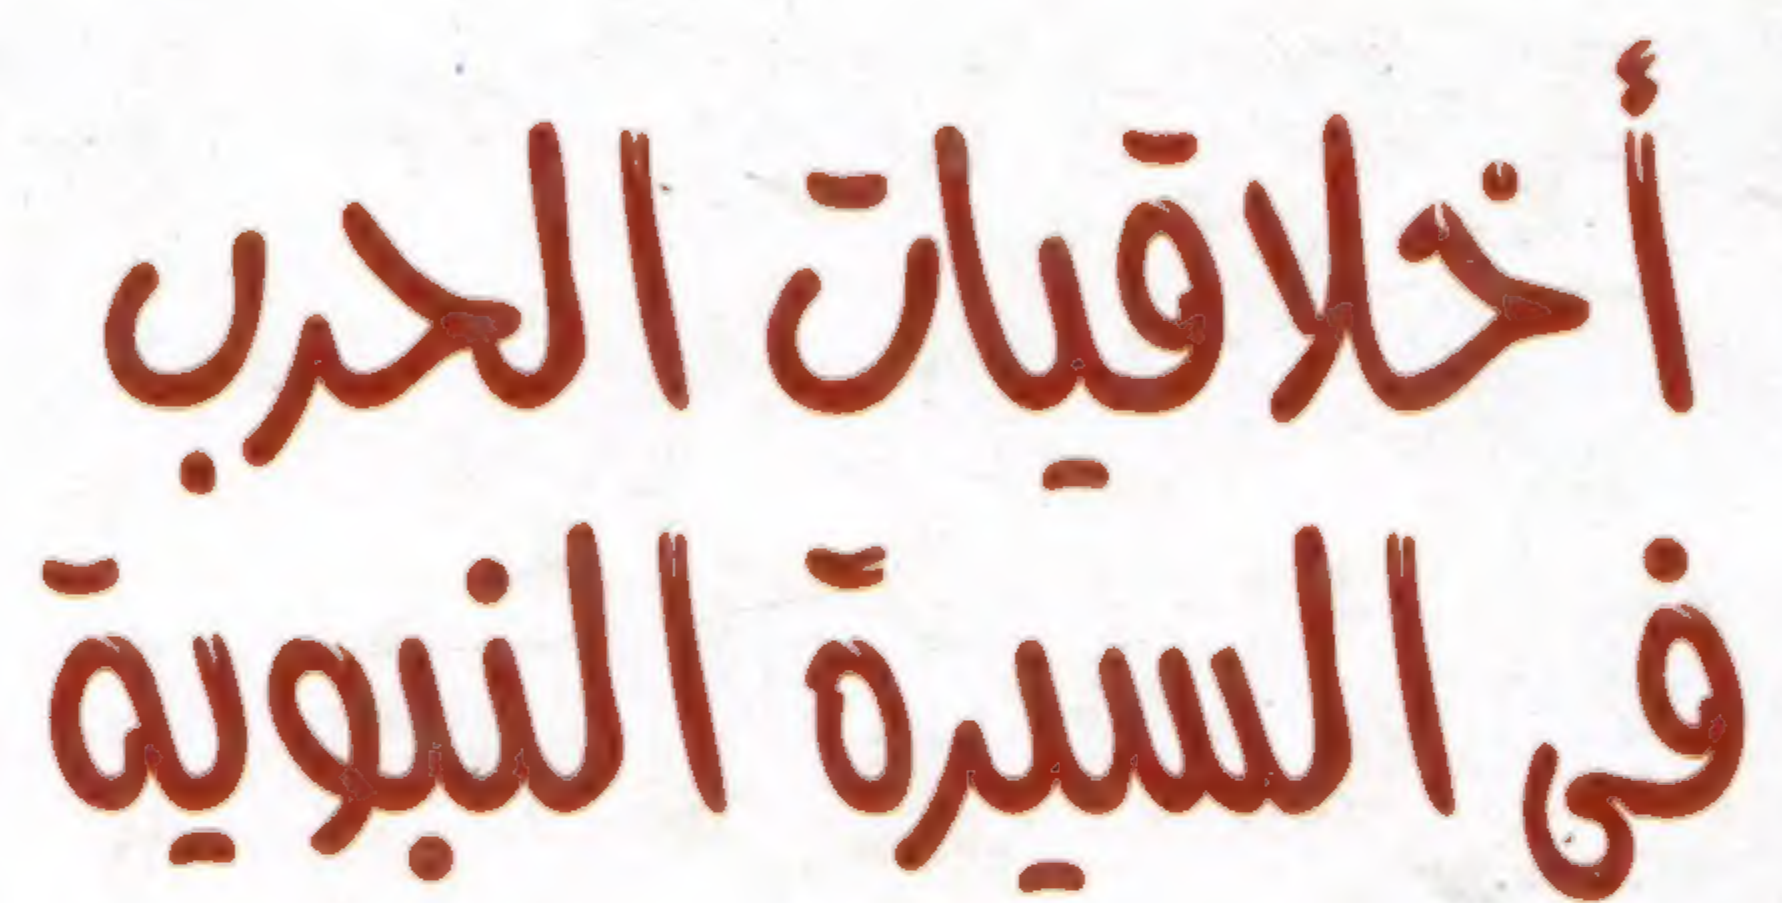 أخلاقيات الحرب
فى السيرة النبوية